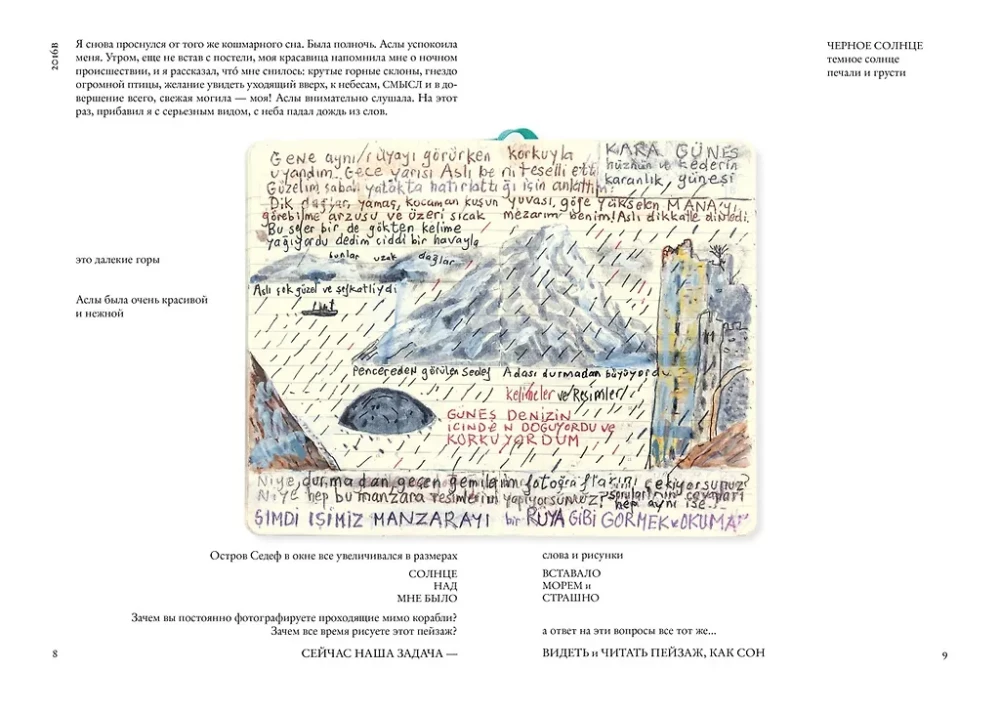 2016В
Я снова проснулся от того же кошмарного сна. Была полночь. Аслы успокоила
меня. Утром, еще не встав с постели, моя красавица напомнила мне о ночном
происшествии, и я рассказал, что́ мне снилось: крутые горные склоны, гнездо
огромной птицы, желание увидеть уходящий вверх, к небесам, СМЫСЛ и в до-
вершение всего, свежая могила — моя! Аслы внимательно слушала. На этот
раз, прибавил я с серьезным видом, с неба падал дождь из слов.
ЧЕРНОЕ СОЛНЦЕ
темное солнце
печали и грусти
Gene aynı rüyayı görürken korkuyla
uyandım. Gece yarısı Aslı beni teselli etti
Güzelim sabah yatakta hatırlattığı için anlattım:
KARA GÜNEŞ
hüznün ve kederin
karanlık, güneşi
Dik dağlar, yamaç, kocaman kuşun yuvası, göğe yükselen MANA'yı
görebilme arzusu ve üzeri sıcak mezarım benim! Aslı dikkatle dinledi.
Bu sefer bir de gökten kelime
yağıyordu dedim ciddi bir havayla
bunlar uzak dağlar
Aslı çok güzel ve şefkatliydi
Pencereden görülen Sedef Adası durmadan büyüyordu
kelimeler ve Resimler
GÜNEŞ DENİZİN
İÇİNDEN DOĞUYORDU ve
KORKUYORDUM
Niye durmadan geçen gemilerin fotoğraflarını çekiyorsunuz?
Niye hep bu manzara resimlerini yapıyorsunuz? soruların cevapları
hep aynı ise...
ŞİMDİ İŞİMİZ MANZARAYI bir RÜYA GİBİ GÖRMEK ve OKUMAK
это далекие горы
Аслы была очень красивой
и нежной
Остров Седеф в окне все увеличивался в размерах
слова и рисунки
СОЛНЦЕ
НАД
МНЕ БЫЛО
ВСТАВАЛО
МОРЕМ и
СТРАШНО
Зачем вы постоянно фотографируете проходящие мимо корабли?
Зачем все время рисуете этот пейзаж?
а ответ на эти вопросы все тот же...
СЕЙЧАС НАША ЗАДАЧА —
ВИДЕТЬ и ЧИТАТЬ ПЕЙЗАЖ, КАК СОН
8
9